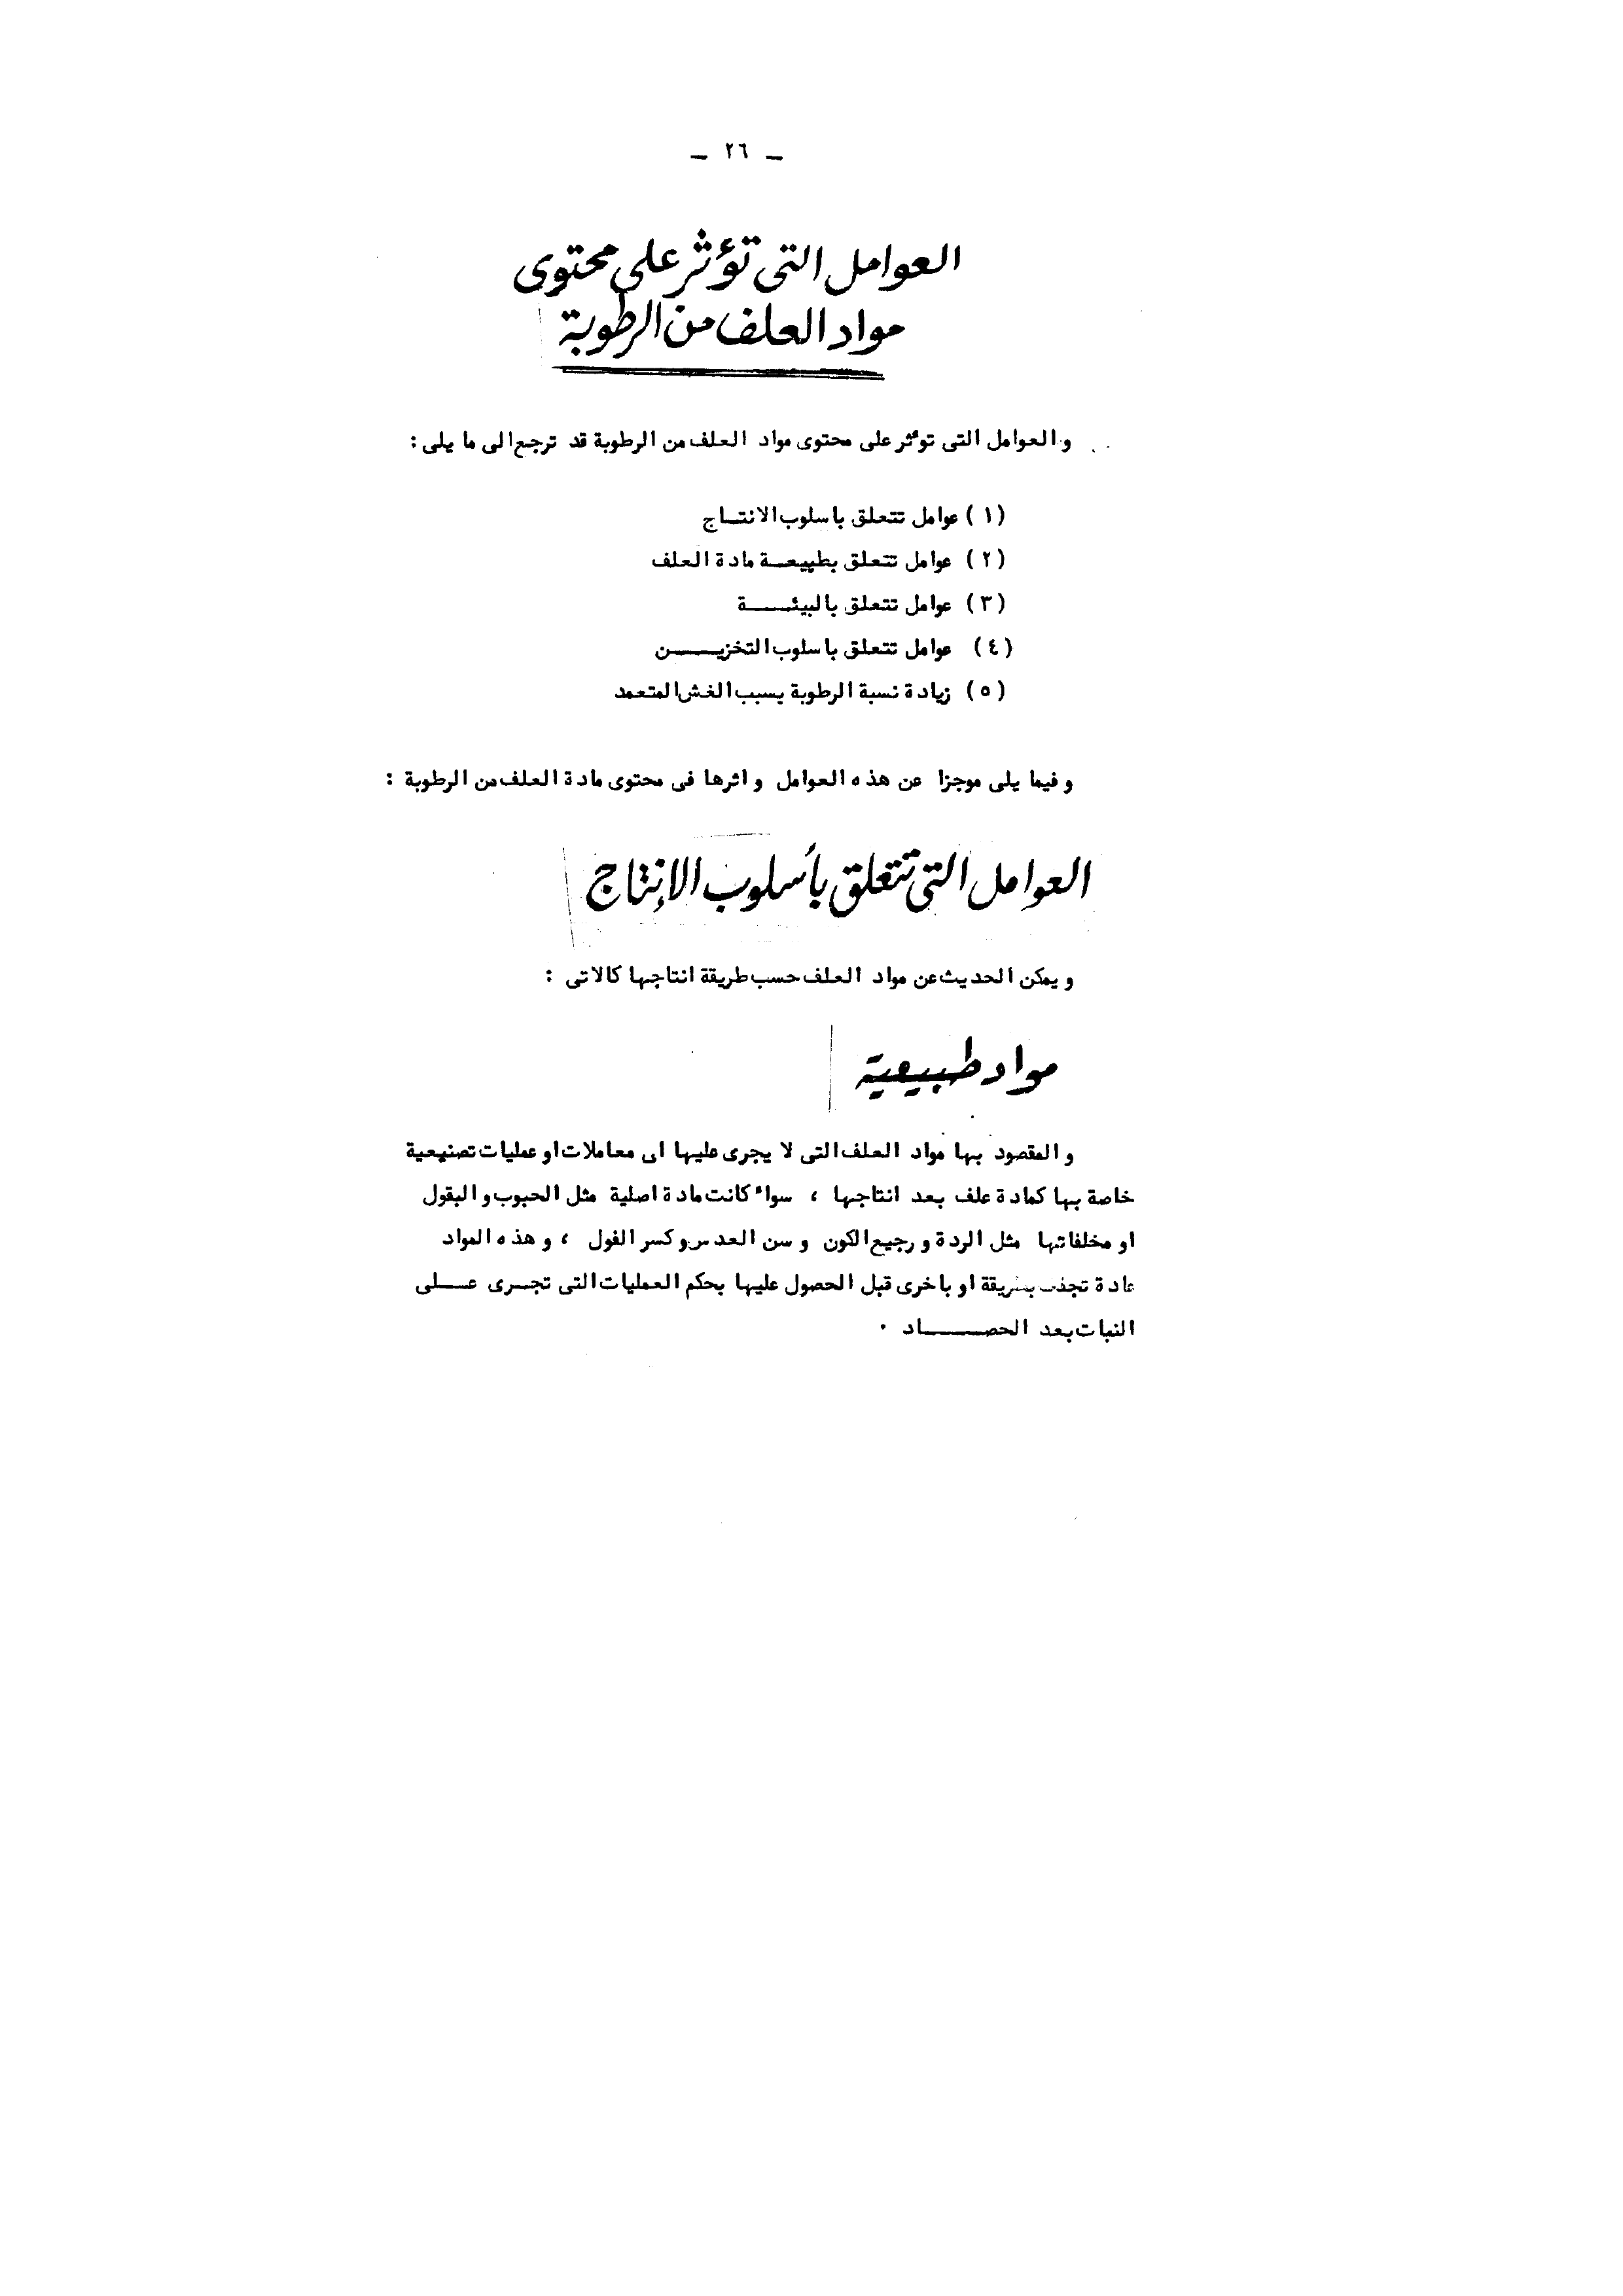 – ٢٦ –
العوامل التى تؤثر على محتوى
مواد العلف من الرطوبة
والعوامل التى تؤثر على محتوى مواد العلف من الرطوبة قد ترجع الى ما يلى :
(١) عوامل تتعلق باسلوب الانتاج
(٢) عوامل تتعلق بطبيعة مادة العلف
(٣) عوامل تتعلق بالبيئة
(٤) عوامل تتعلق باسلوب التخزين
(٥) زيادة نسبة الرطوبة بسبب الغش المتعمد
وفيما يلى موجزا عن هذه العوامل واثرها فى محتوى مادة العلف من الرطوبة :
العوامل التى تتعلق بأسلوب الإنتاج
ويمكن الحديث عن مواد العلف حسب طريقة انتاجها كالاتى :
مواد طبيعية
والمقصود بها مواد العلف التى لا يجرى عليها اى معاملات او عمليات تصنيعية
خاصة بها كمادة علف بعد انتاجها ، سواء كانت مادة اصلية مثل الحبوب والبقول
او مخلفاتها مثل الردة ورجيع الكون وسن العدس وكسر الفول ، وهذه المواد
عادة تجفف بطريقة او باخرى قبل الحصول عليها بحكم العمليات التى تجرى على
النبات بعد الحصاد .